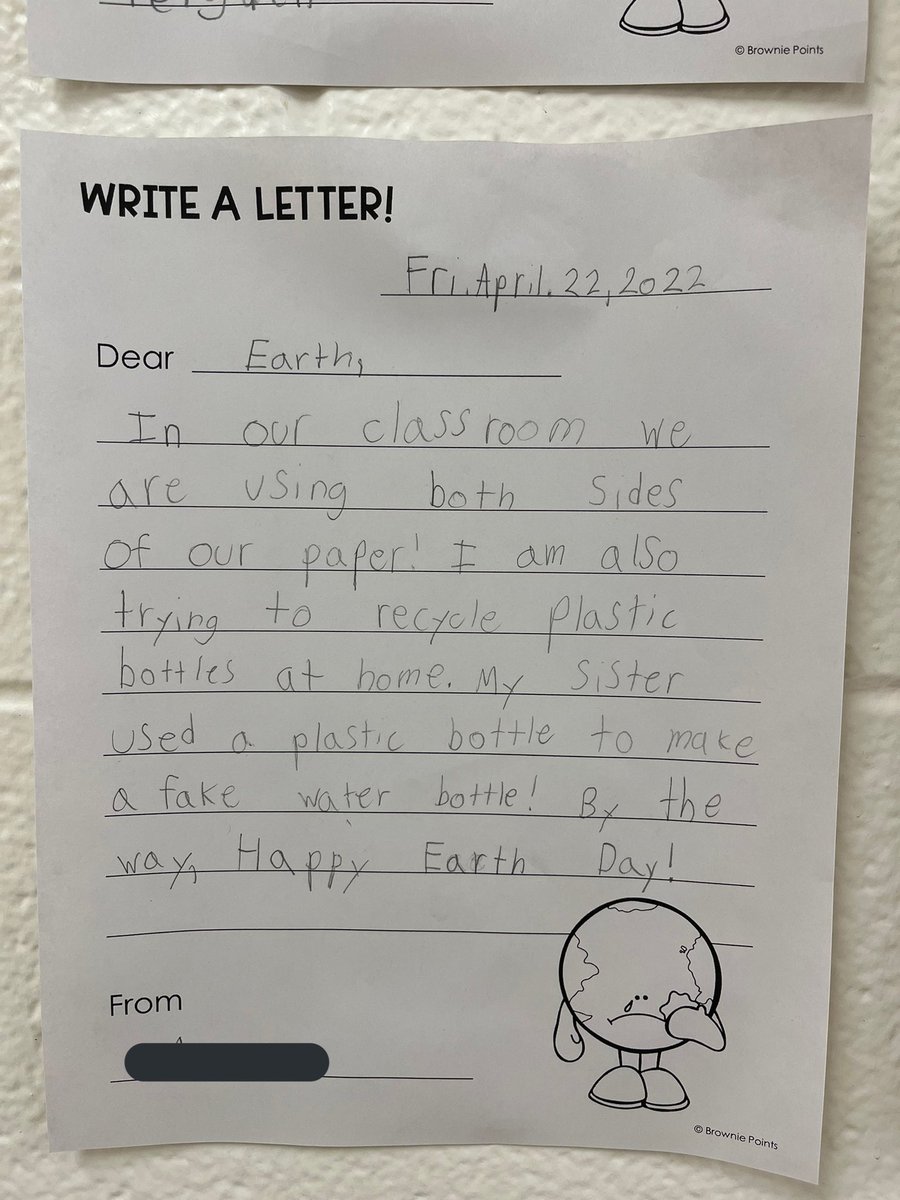 © Brownie Points
WRITE A LETTER!
Fri. April. 22, 2022
Dear Earth,
In our classroom we
are using both sides
of our paper! I am also
trying to recycle plastic
bottles at home. My sister
used a plastic bottle to make
a fake water bottle! By the
way, Happy Earth Day!
From
© Brownie Points